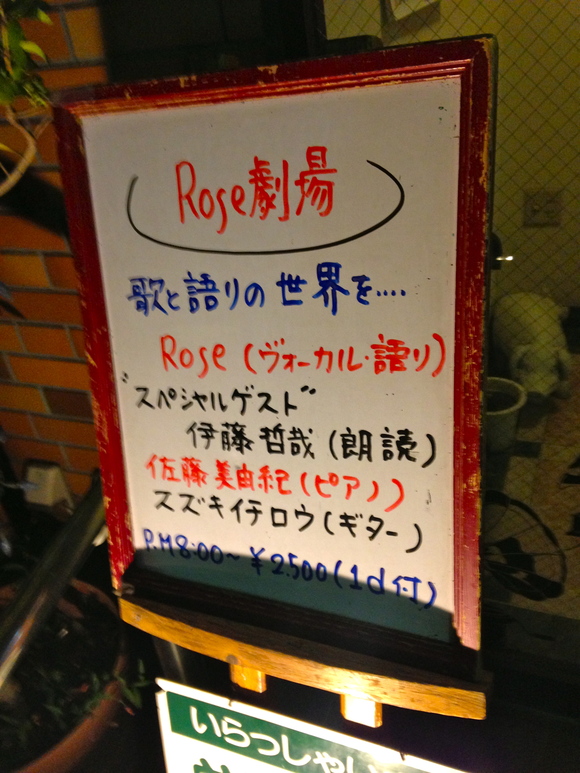 Rose劇場
歌と語りの世界を....
Rose (ヴォーカル・語り)
"スペシャルゲスト"
伊藤哲哉(朗読)
佐藤美由紀(ピアノ)
スズキイチロウ(ギター)
P.M8:00〜¥2.500(1d付)
いらっしゃい